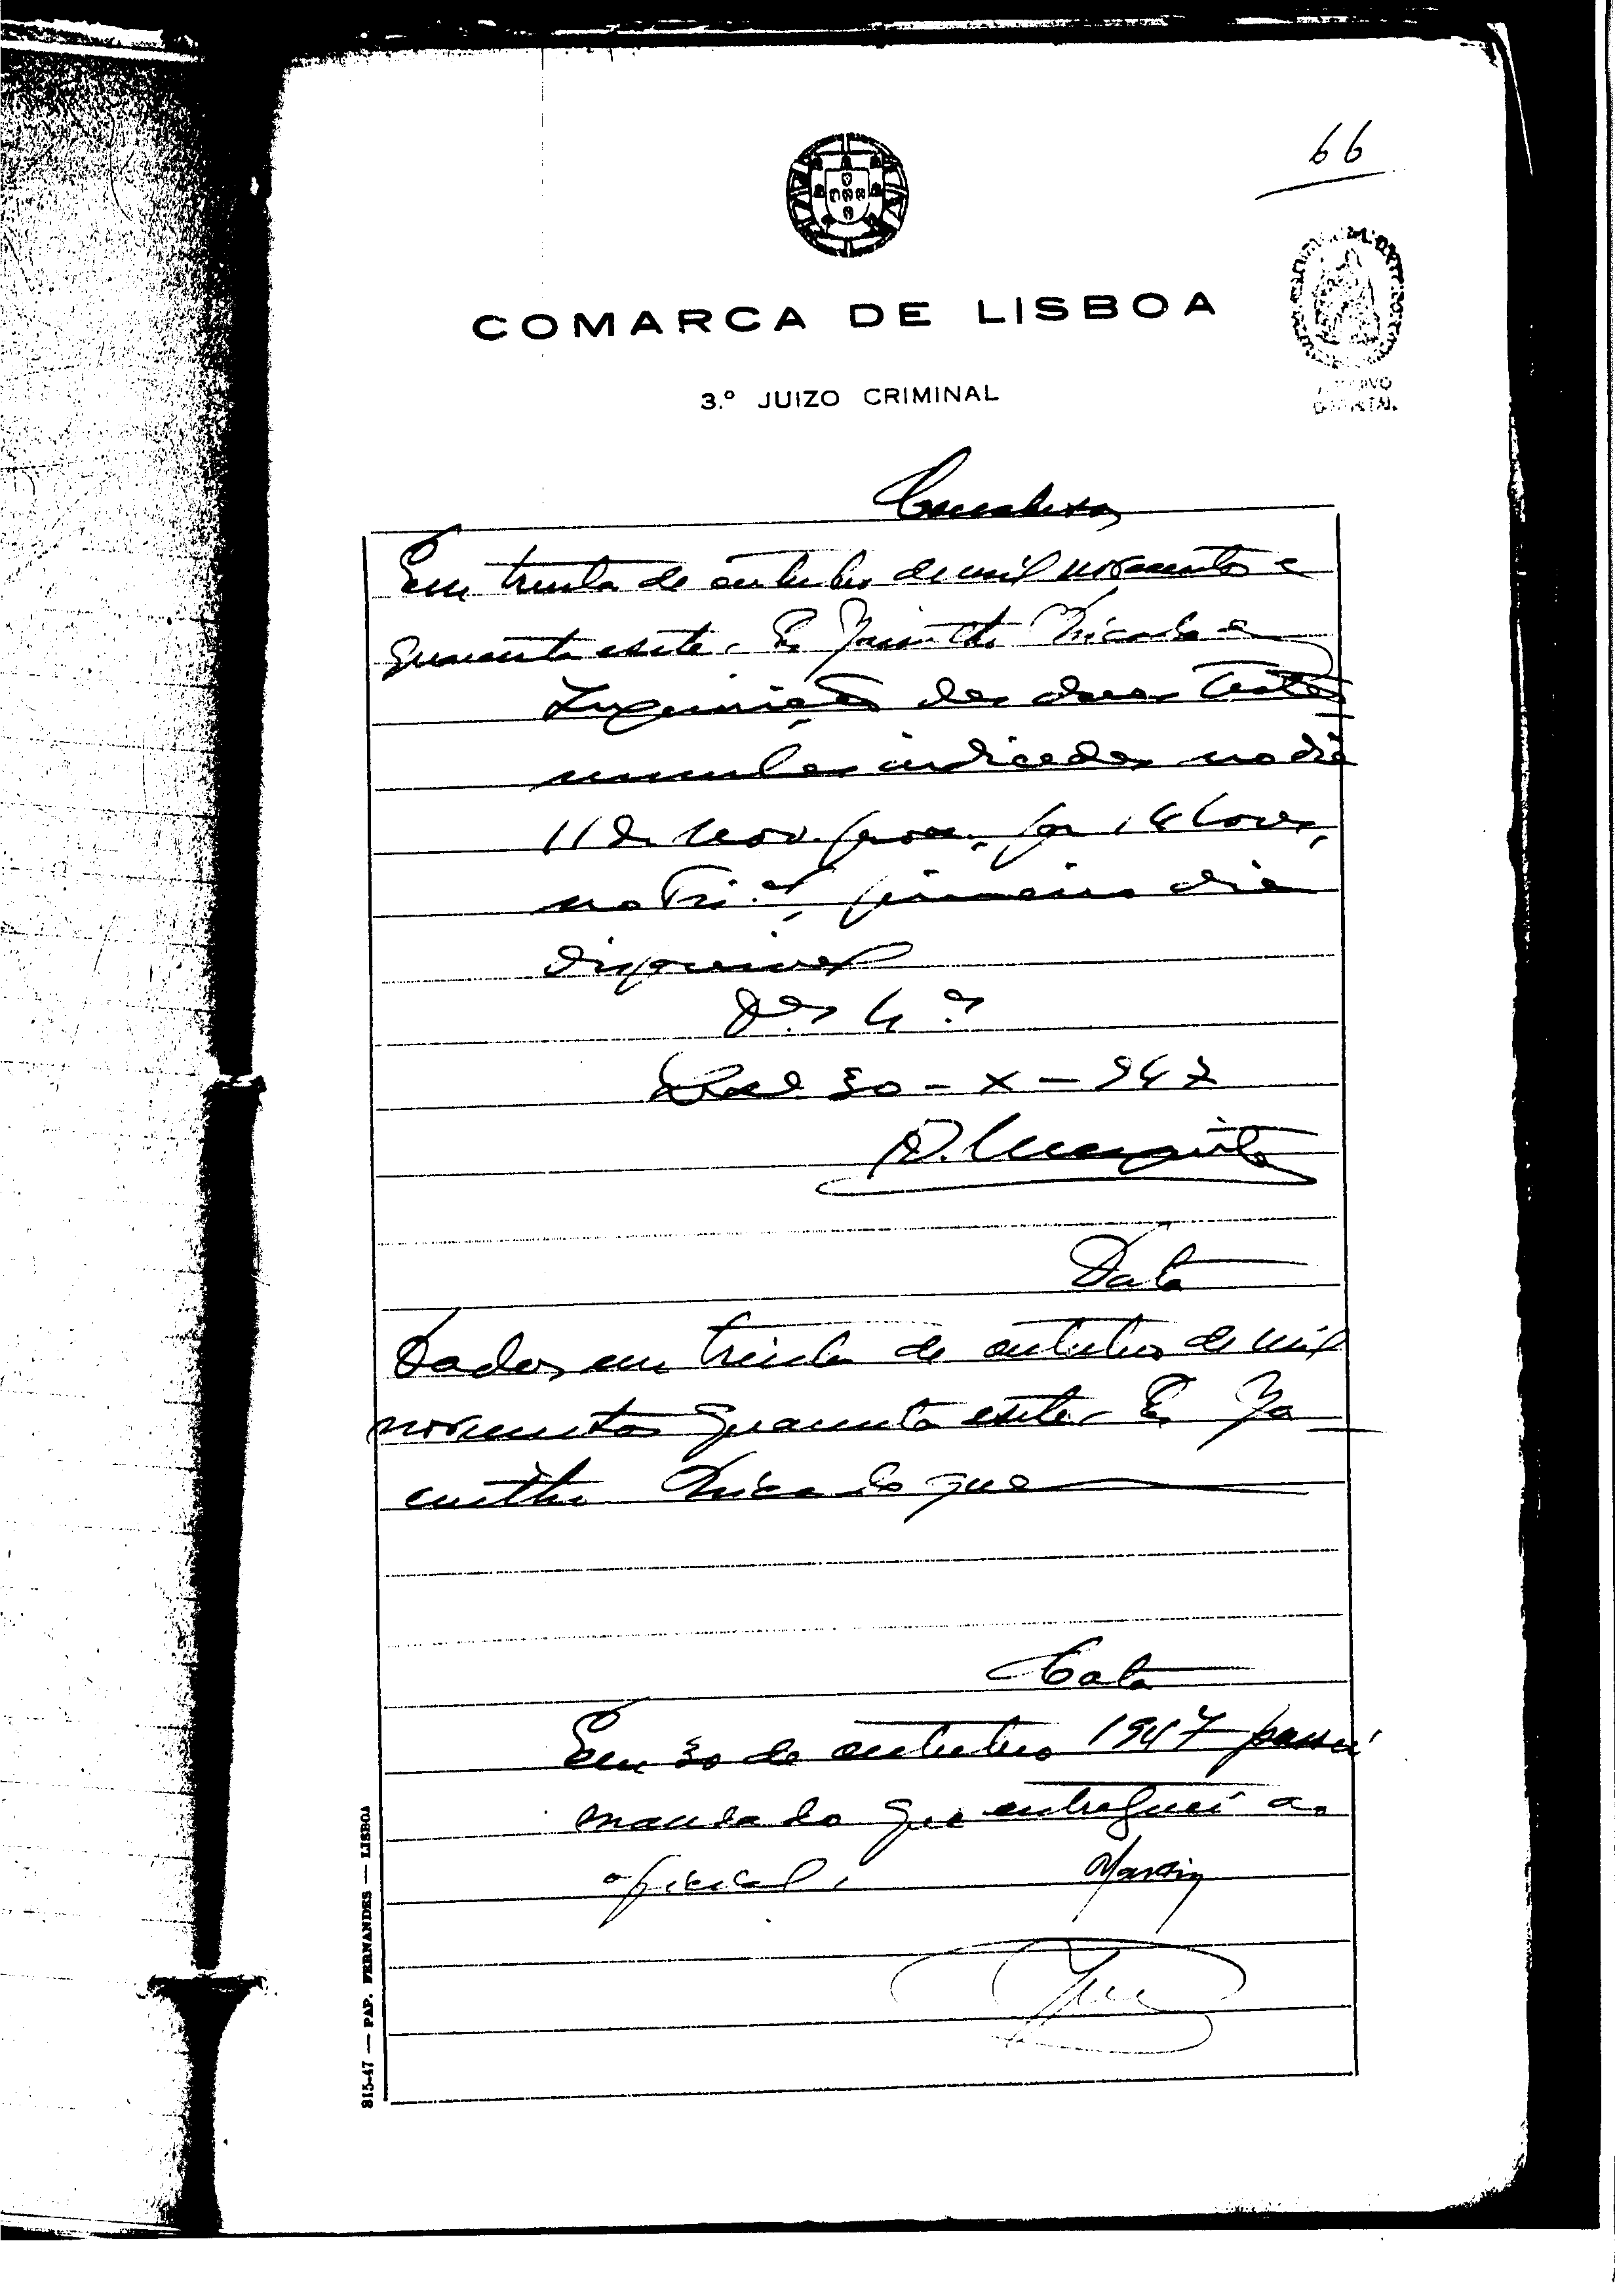 66
COMARCA DE LISBOA
3.º JUIZO CRIMINAL
Conclusão
Em trinta de outubro de mil novecentos e
quarenta e sete. E. Jacintho
Inquirição das duas teste
munhas indicadas no dia
11 de Nov. prox., por 14 horas,
no Tri.al, primeiro dia
disponivel
30 - X - 947
Data
Dados em trinta de outubro de mil
novecentos quarenta e sete. E. Ja
cintho
Cota
Em 30 de outubro 1947 passei
mandado que entreguei ao
oficial.
815-47 — PAP. FERNANDES — LISBOA